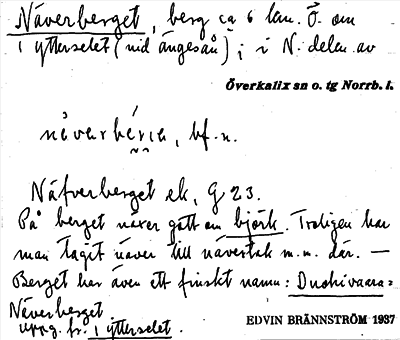 Näverberget, berg ca 6 km. Ö. om
Ytterselet (vid ängesån); i N. delen av
Överkalix sn o. tg Norrb. l.
bf. n.
Näfverberget ek, G 23.
På berget växer gott om björk. Troligen har
man tagit näver till nävertak m.m. där. —
Berget har även ett finskt namn:
Näverberget
uppg. fr. Ytterselet.
EDVIN BRÄNNSTRÖM 1937